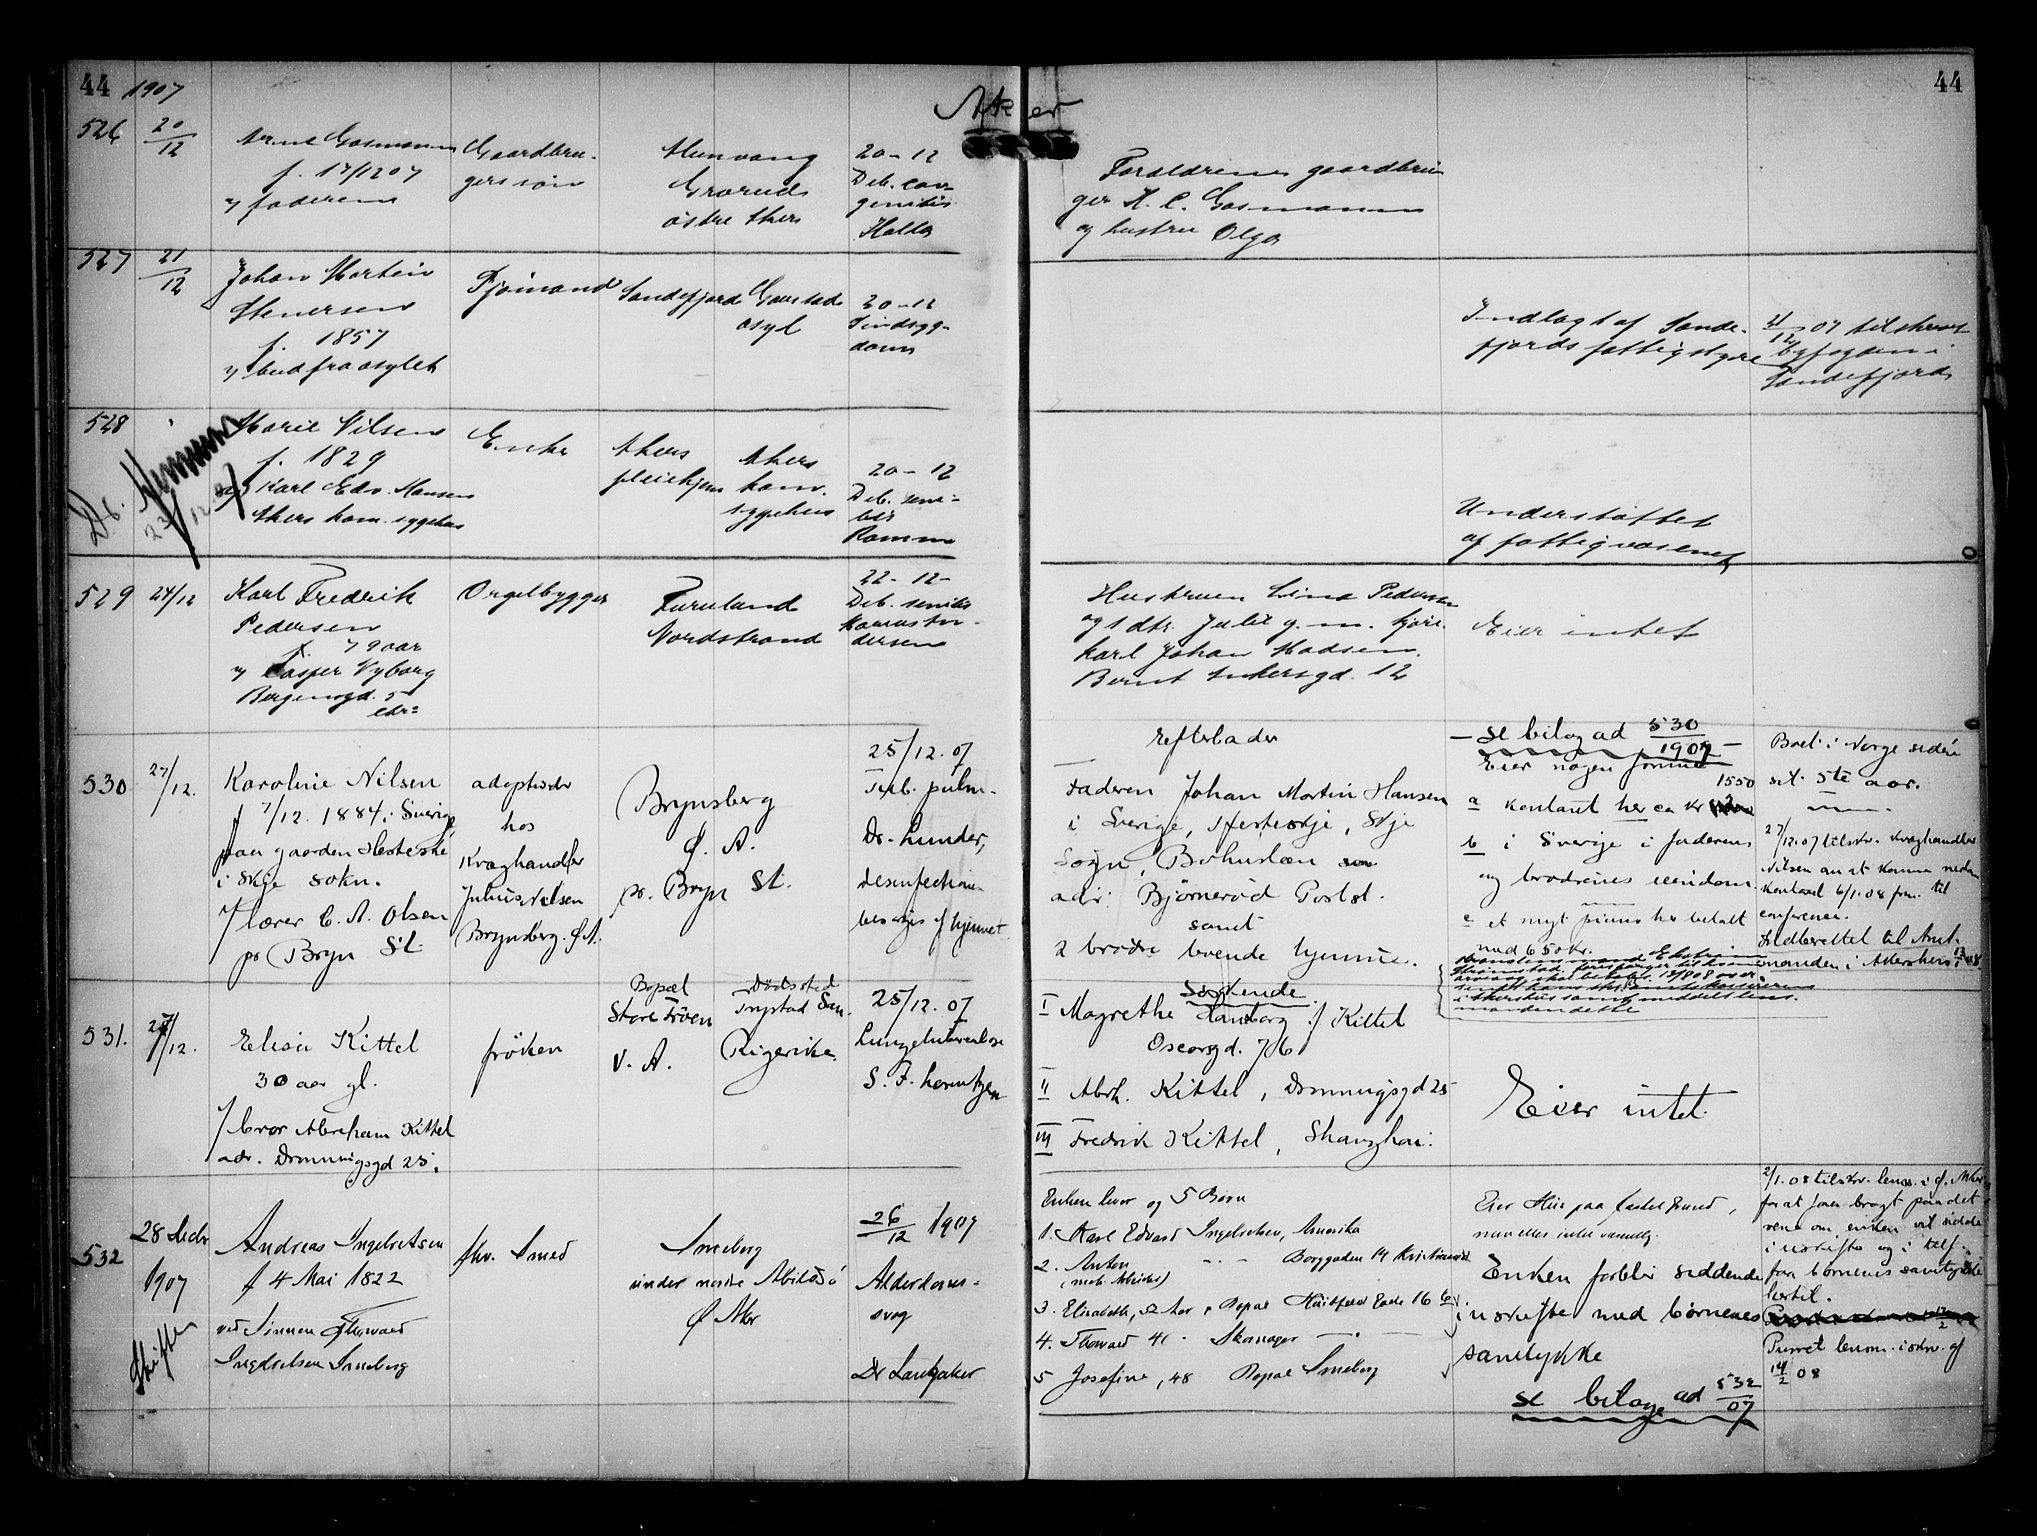 44 1907
Aker
44
526 20/12
Arne Gasmann
f. 17/12 07
v/ faderen
Gaardbru-
gers søn
Alunvang
Grorud
østre Akers
20-12
Deb. con-
genitis
Holth
Forældrene gaardbru
ger H. C. Gasmann
og hustru Olga
527 21/12
Johan Martin
Stenersen
f. 1857
v/ bud fra asylet
Sjømand
Sandefjord
Gaustad
asyl
20-12
Sindsyg-
dom
Indlagt af Sande-
fjords fattigstyre
21/12 07 tilskrevet
byfogden i
Sandefjord
528 "
Marie Nilsen
f. 1829
v/ Karl Edv. Hansen
Akers kom. sygehus
Db.
23/12 07
Enke
Akers
pleiehjem
Akers
kom.
sygehus
20-12
Deb. seni-
lis
Ramm
Understøttet
af fattigvæsenet
529 24/12
Karl Fredrik
Pedersen
f. 79 aar
v/ Casper Nyborg
Bergensgd. 5
Orgelbygger
Furuland
Nordstrand
22-12-
Deb. senilis
dersen
Hustruen Lina Pedersen
og 1 dtr. Julie g. m. kjøre
karl Johan Madsen.
Bernt Ankersgd. 12
Eier intet
530 27/12.
Karoline Nilsen
f 7/12. 1884 i Sverige
paa gaarden Hesteskje
i Skje sokn.
v/ lærer C. A. Olsen
pr Bryn St.
adoptivdtr
hos
Kvæghandler
Julius Nilsen
Brynsberg. Ø. A.
Brynsberg
Ø. A.
pr. Bryn St.
25/12. 07
Tub. pulm.
Dr. Lunder,
Desinfection
besørges af hjemmet
Efterlader
Faderen Johan Martin Hansen
i Sverige, Hesteskje, Skje
Sogn, Bohuslæn
adr: Bjørnerød Postst.
samt
2 brødre boende hjemme.
- se bilag ad 530/1907 -
Eier nogen formue
1550
a kontant her ca kr
b i Sverige i faderens
og brødrenes eiendom.
c et nyt piano her betalt
med 650 kr.
Boet i Norge siden
sit 5te aar.
27/12.07 tilskr. kvæghandler
Nilsen om at komme nedom
kontoret 6/1.08 frm. til
conference.
Indberettet til Amt-
manden i Akershus 13/1 08
531. 27/12.
Elisa Kittel
30 aar gl.
v/ bror Abraham Kittel
adr. Dronningsgd 25.
frøken
Bopæl
Store Frøen
V. A.
Dødssted
Ringerike.
25/12. 07
Lungetuberculose
S. F. Lorentzen
Søskende
I Magrethe Hamborg f/ Kittel
Oscarsgd. 76
II Abrh. Kittel, Dronningsgd 25
III Fredrik Kittel, Shanghai.
Eier intet
532
28 Decbr
1907
Skifte
Andreas Ingebretsen
f 4 Mai 1822
ved Sønnen Thorvald
Ingebretsen Smeberg
fhv. Smed
Smeberg
under nordre Abildsø
Ø Aker
26/12 1907
Alderdoms-
svag
Enken lever og 5 Børn
1. Karl Edvard Ingebretsen, Amerika
2. Anton - " - Borggaden 14 Kristiania
3. Elisabeth, 52 Aar, Bopæl Huitfeldts Gade 16
4. Thorvald 41 - Skomager
5 Josefine, 48 Bopæl Smeberg
Eier Hus paa fæstet grund,
men ellers intet væsentlig.
Enken forblir siddende
i uskifte med børnenes
samtykke
se bilage ad 532/07
2/1.08 tilskr. lensm. i Ø. Aker
for at faa bragt paa det
rene om enken vil sidde
i uskifte og i tilf.
faa børnenes samtykke
hertil.
Purret lensm. i skr. af
14/2 08